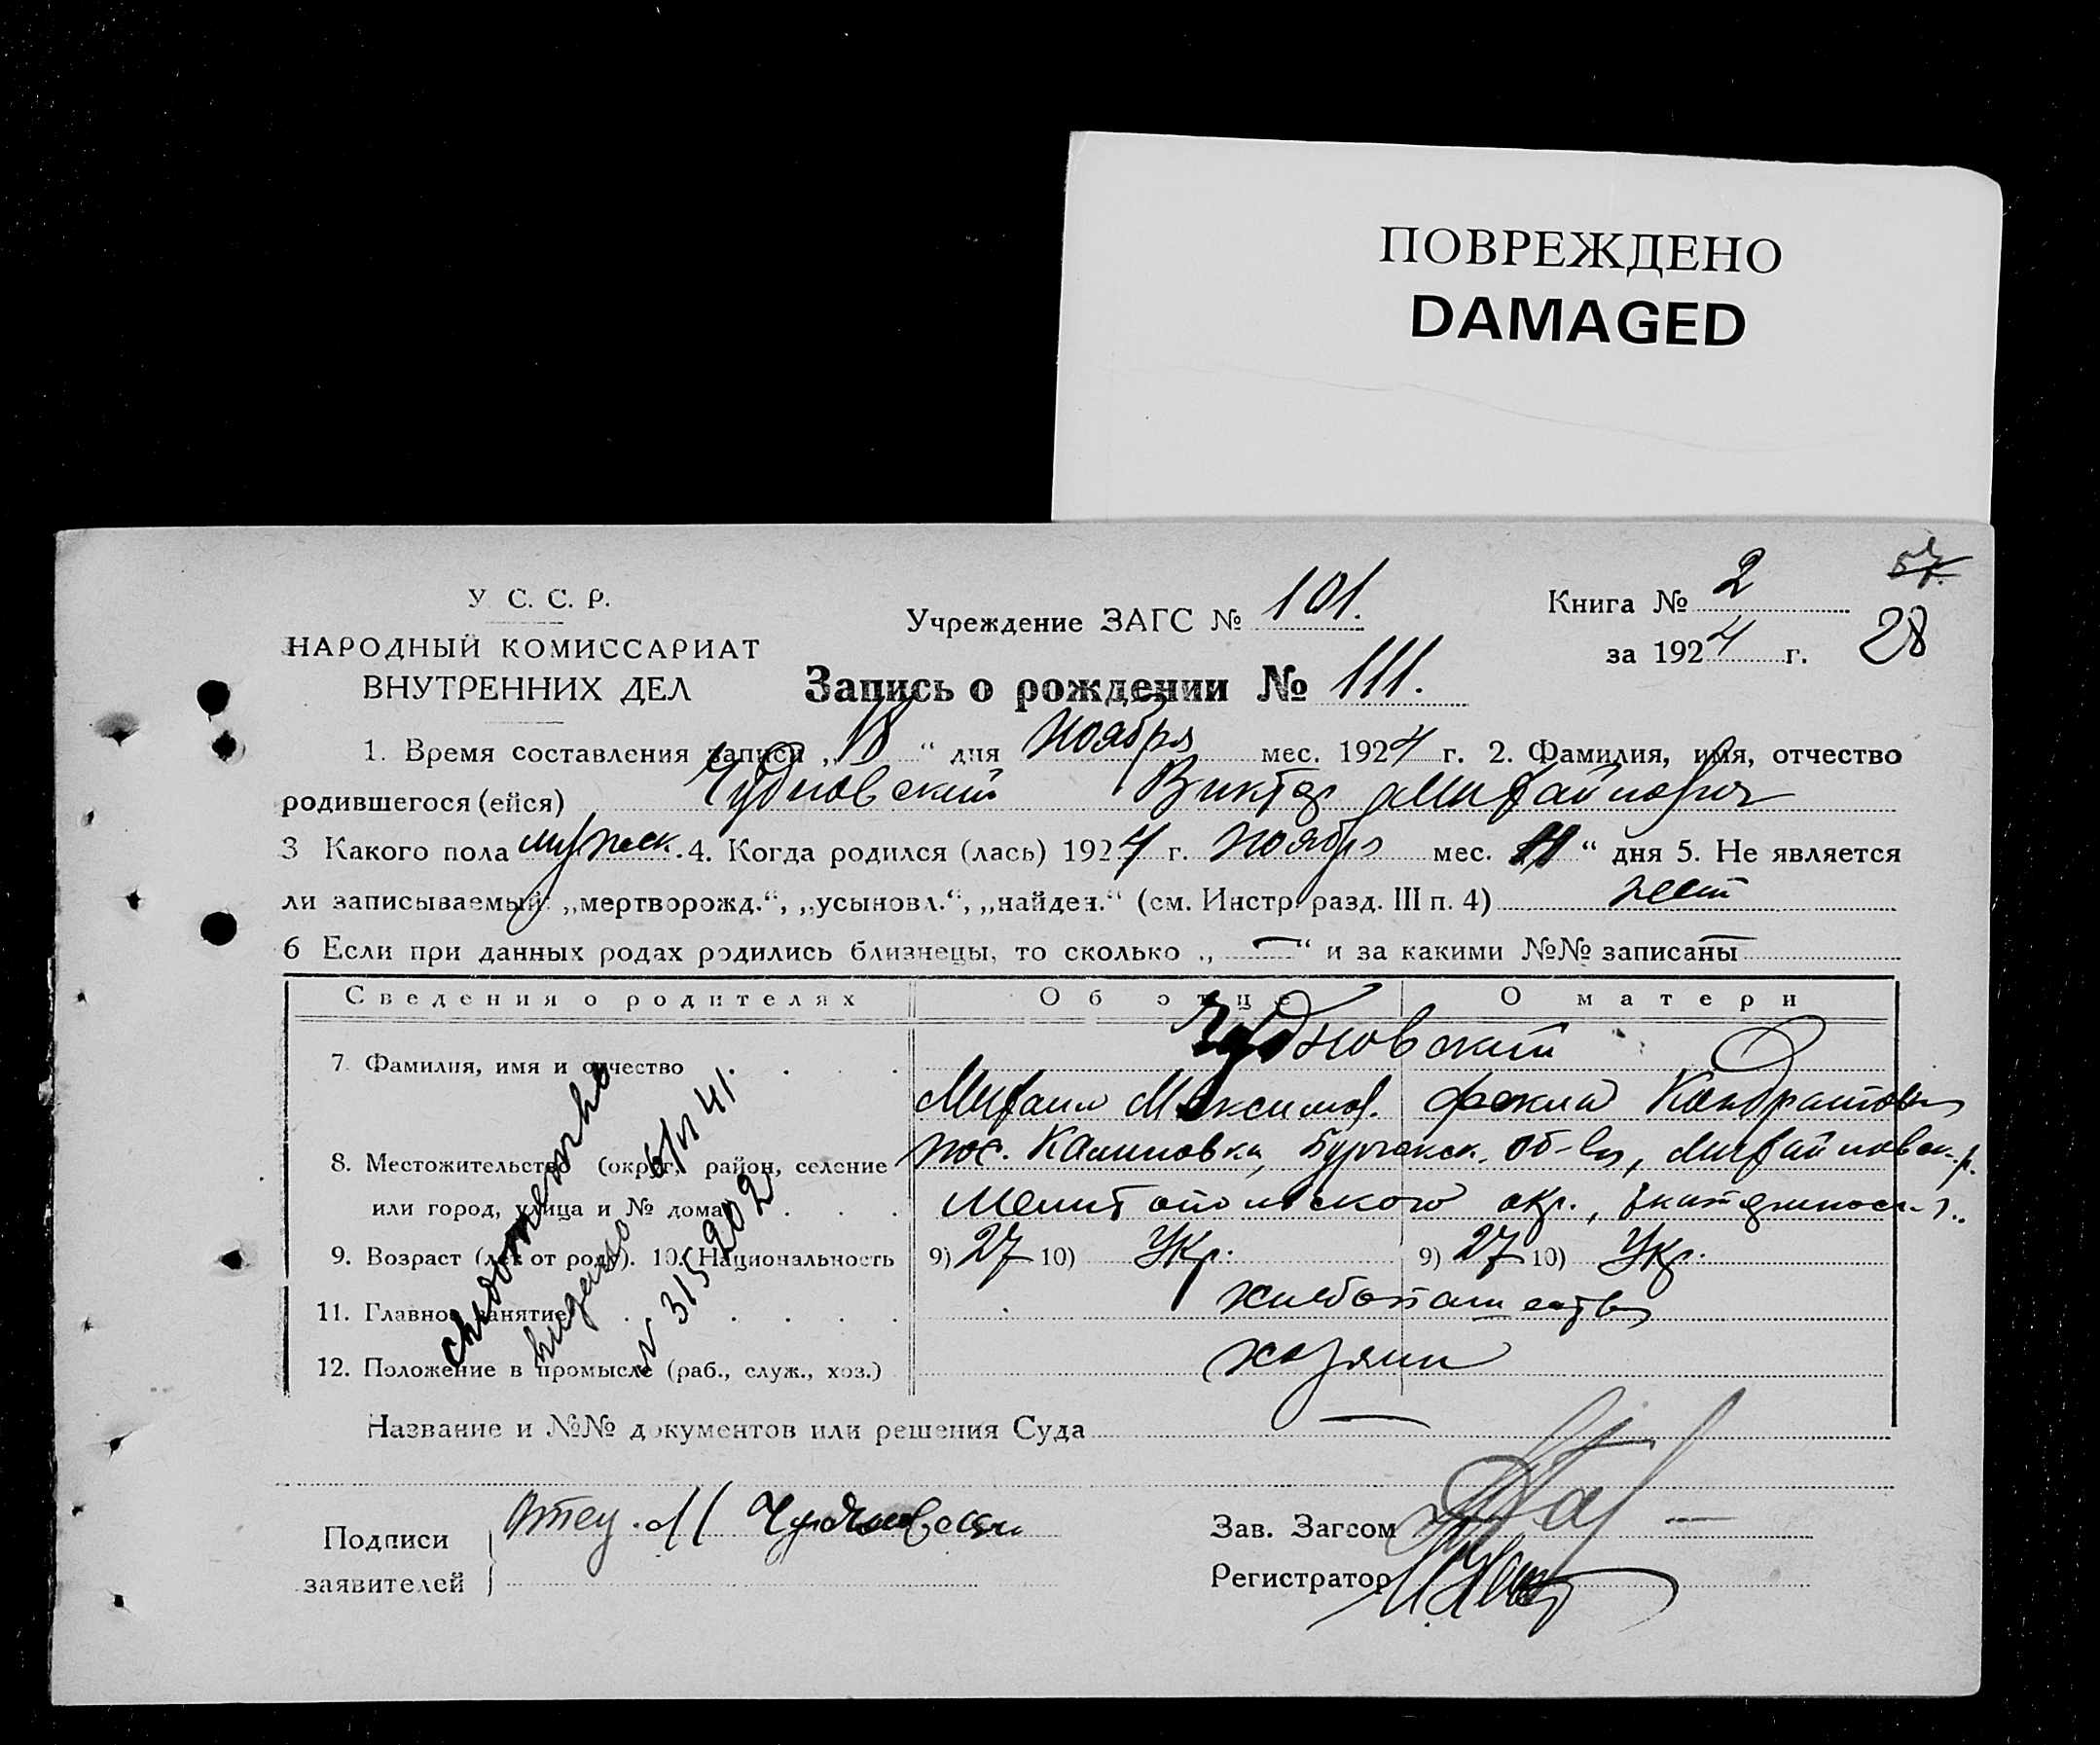 ПОВРЕЖДЕНО
DAMAGED
57.
28
У С. С. Р.
НАРОДНЫЙ КОМИССАРИАТ
ВНУТРЕННИХ ДЕЛ
Учреждение ЗАГС № 101.
Книга № 2
за 1924 г.
Запись о рождении № 111.
1. Время составления записи „18“ дня Ноября мес. 1924 г. 2. Фамилия, имя, отчество
родившегося (ейся) Чудновский Виктор Михайлович
3 Какого пола мужеск. 4. Когда родился (лась) 1924 г. Ноября мес. “ дня 5. Не является
ли записываемый: „мертворожд.“, „усыновл.“, „найден.“ (см. Инстр. разд. III п. 4) нет
6 Если при данных родах родились близнецы, то сколько „ — “ и за какими №№ записаны —
Сведения о родителях Об отце О матери
7. Фамилия, имя и отчество Чудновский
Михаил Максимов. Фекла Кондратовн
8. Местожительство (округ, район, селение пос. Калиновка, Бурчакск. об-ва, Михайловск. р.
или город, улица и № дома Мелитопольского окр., Екатеринос. г.
9. Возраст (лет от роду). 10. Национальность 9) 27 10) Укр. 9) 27 10) Укр.
11. Главное занятие хлебопашество
12. Положение в промысле (раб., служ., хоз.) хозяин
видано
6/II 41.
№ 315202
Название и №№ документов или решения Суда —
Подписи
заявителей
Отец. М Чудновский
Зав. Загсом
Регистратор